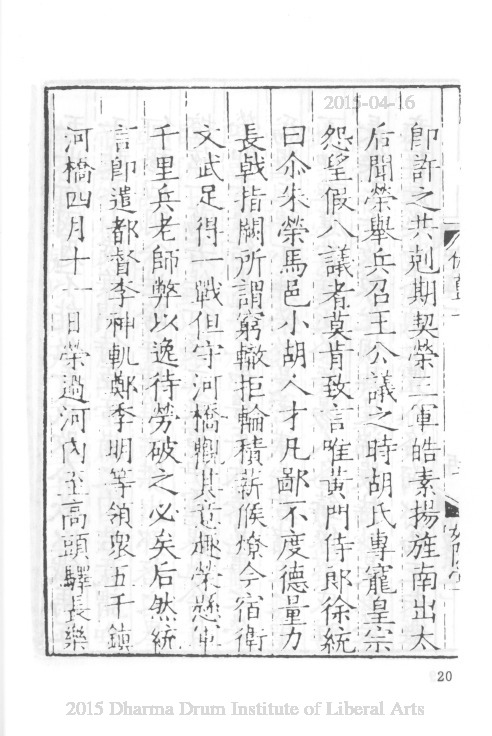 2015-04-16
卽許之共剋期契榮三軍皓素揚旌南出太
后聞榮舉兵召王公議之時胡氏專寵皇宗
怨望假八議者莫肯致言唯黃門侍郎徐統
曰尒朱榮馬邑小胡人才凡鄙不度德量力
長戟指闕所謂窮轍拒輪積薪候燎今宿衛
文武足得一戰但守河橋觀其意趣榮懸軍
千里兵老師弊以逸待勞破之必矣后然統
言卽遣都督李神軌鄭季明等領衆五千鎮
河橋四月十一日榮過河內至高頭驛長樂
20
2015 Dharma Drum Institute of Liberal Arts